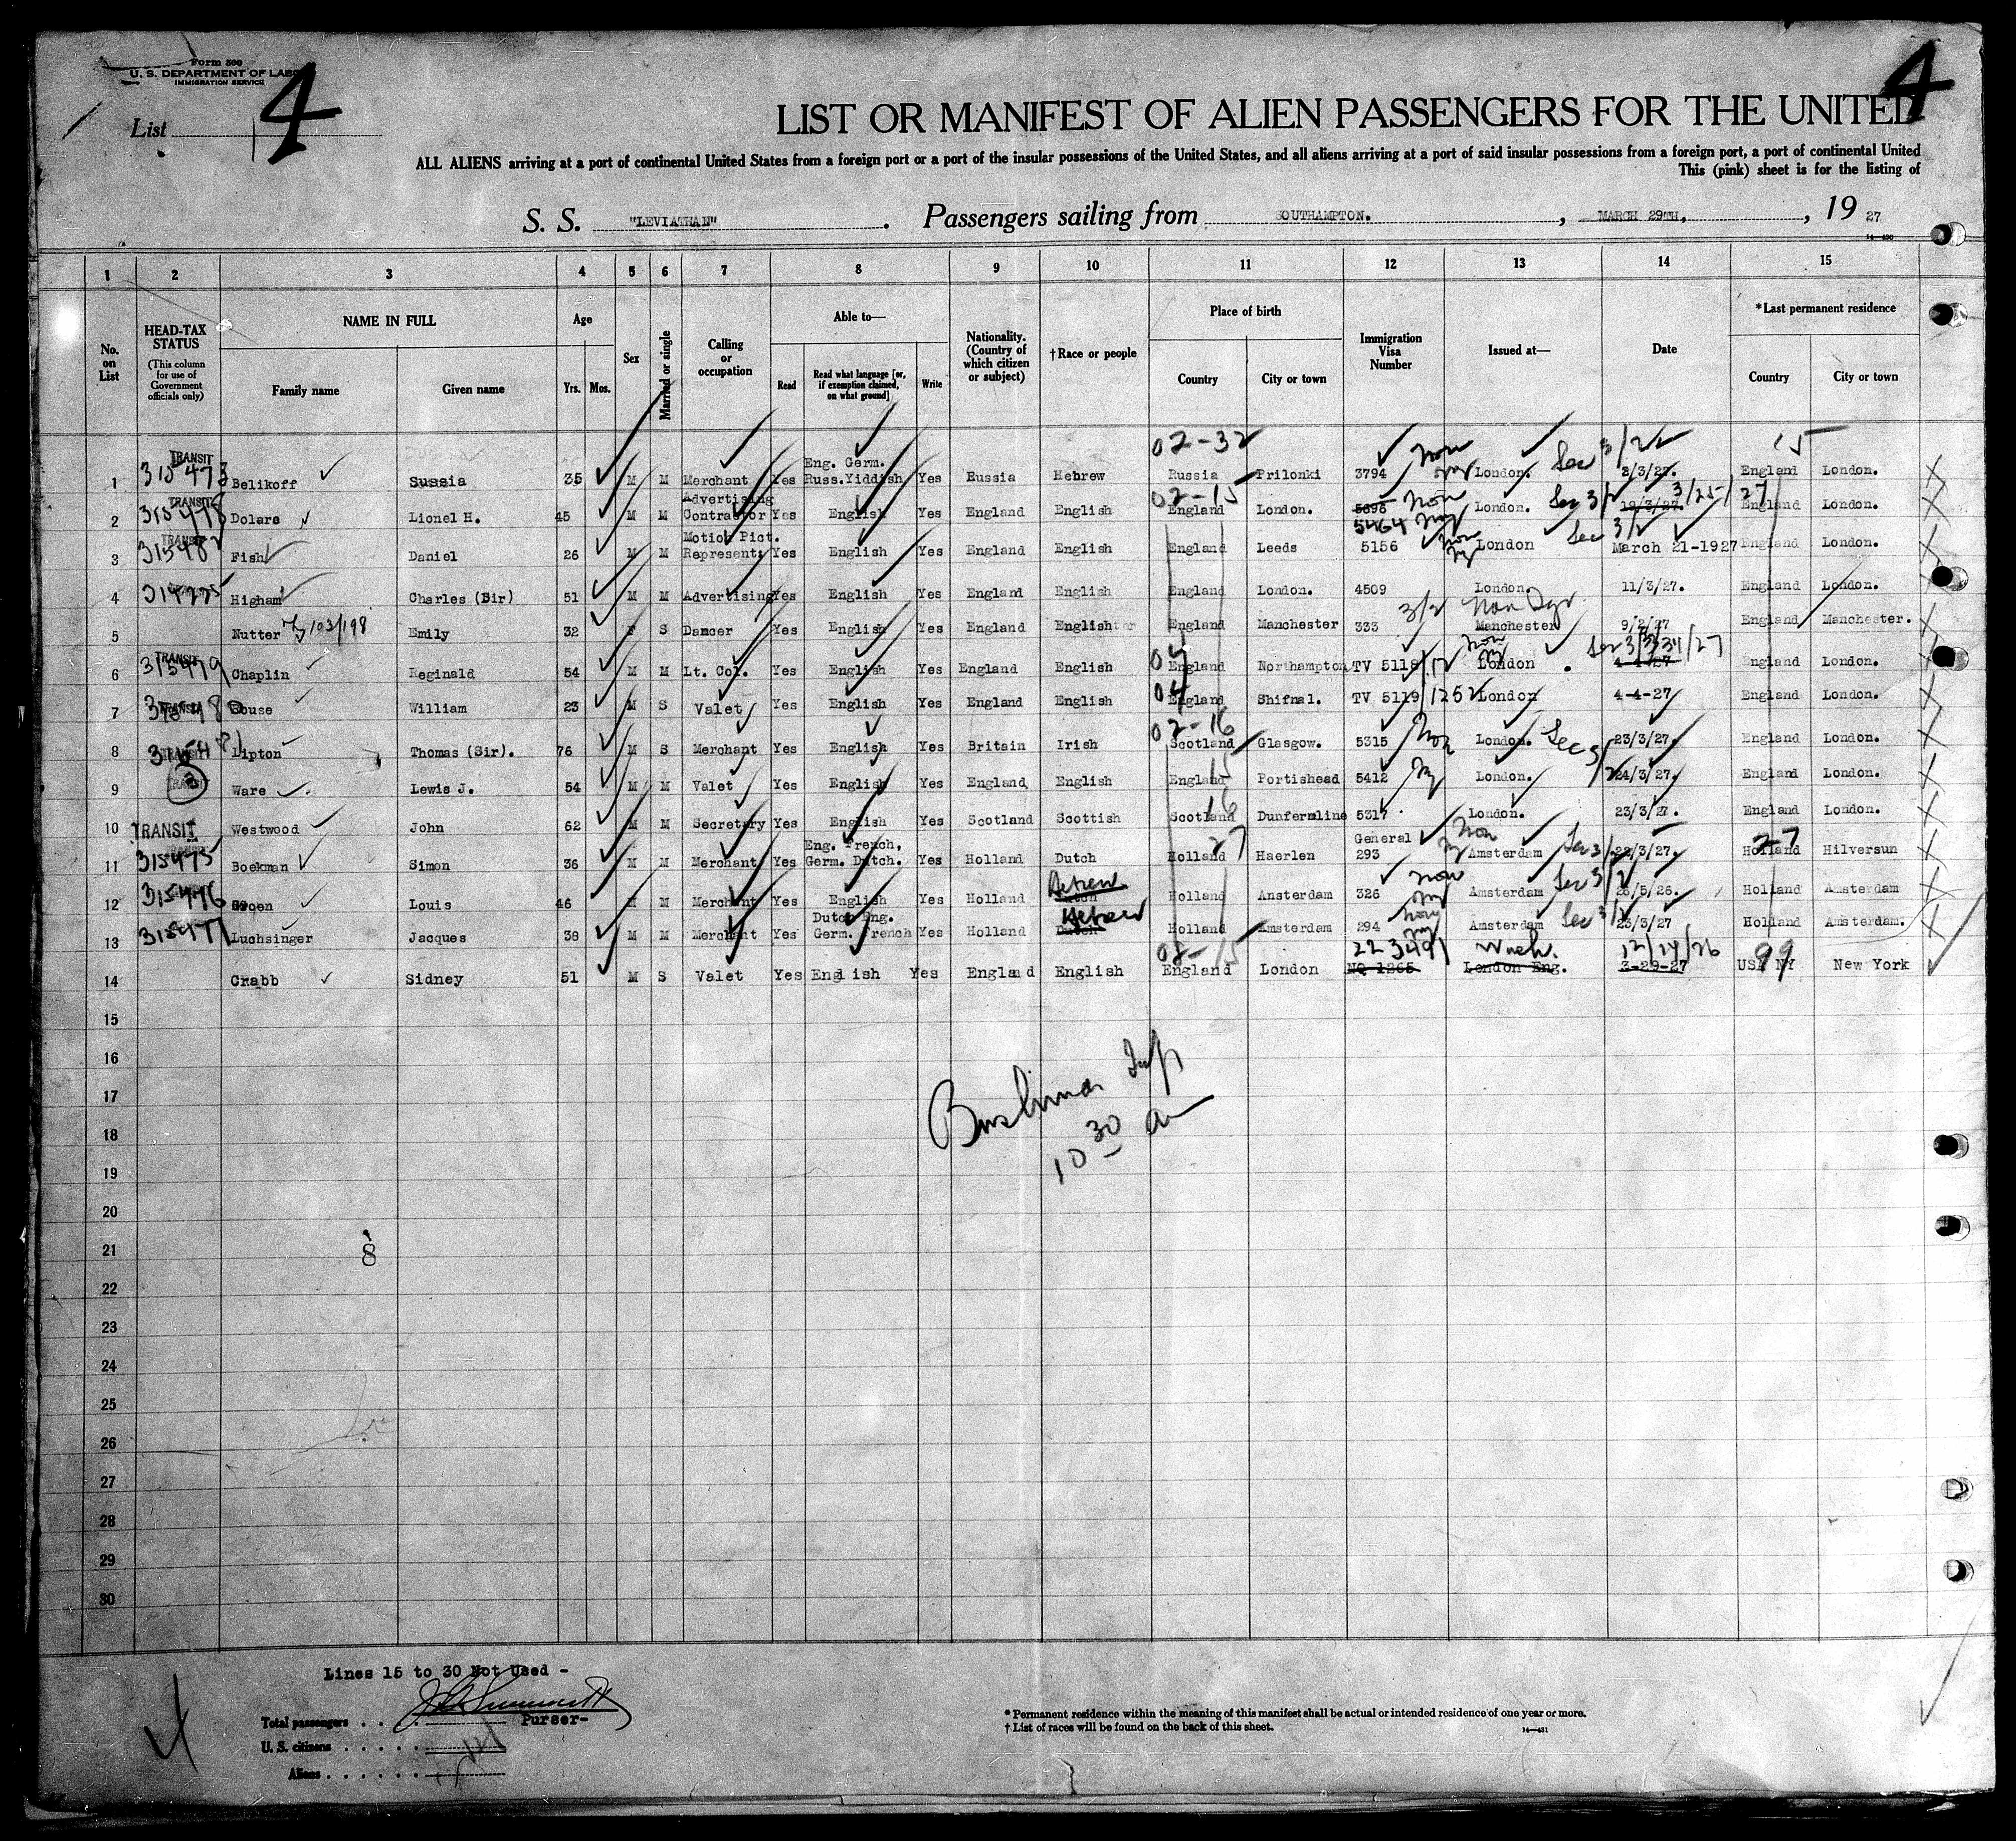 Form 500
U. S. DEPARTMENT OF LABO
IMMIGRATION SERVICE
List 4
4
LIST OR MANIFEST OF ALIEN PASSENGERS FOR THE UNITED
ALL ALIENS arriving at a port of continental United States from a foreign port or a port of the insular possessions of the United States, and all aliens arriving at a port of said insular possessions from a foreign port, a port of continental United
This (pink) sheet is for the listing of
S. S. "LEVIATHAN". Passengers sailing from SOUTHAMPTON. , MARCH 29TH, , 19 27
1 2 3 4 5 6 7 8 9 10 11 12 13 14 15
No. on List
HEAD-TAX STATUS (This column for use of Government officials only)
NAME IN FULL
Family name Given name
Age
Yrs. Mos.
Sex
Married or single
Calling or occupation
Able to—
Read Read what language [or, if exemption claimed, on what ground] Write
Nationality. (Country of which citizen or subject)
†Race or people
Place of birth
Country City or town
Immigration Visa Number
Issued at—
Date
*Last permanent residence
Country City or town
02-32 15
1 TRANSIT 315473 Belikoff Sussia 35 M M Merchant Yes Eng. Germ. Russ. Yiddish Yes Russia Hebrew Russia Prilonki 3794 London. Sec 3/2 3/3/27. England London.
2 TRANSIT 315478 Dolars Lionel H. 45 M M Advertising Contractor Yes English Yes England English 02-15 England London. 5696 5464 London. Sec 3/2 19/3/27. 3/25/27 England London.
3 TRANSIT 315482 Fish Daniel 26 M M Motion Pict. Represent: Yes English Yes England English England Leeds 5156 London Sec 3/2 March 21-1927 England London.
4 Higham Charles (Sir) 51 M M Advertising Yes English Yes England English England London. 4509 London 11/3/27. England London.
5 Nutter 103/198 Emily 32 F S Dancer Yes English Yes England English England Manchester 333 3/2 Manchester 9/2/27 England Manchester.
6 TRANSIT 315479 Chaplin Reginald 54 M M Lt. Col. Yes English Yes England English 04 England Northampton TV 5118 London 4-4-27 England London.
7 TRANSIT Rouse William 23 M S Valet Yes English Yes England English 04 England Shifnal. TV 5119 /1252 London 4-4-27 England London.
8 TRANSIT Lipton Thomas (Sir). 76 M S Merchant Yes English Yes Britain Irish 02-16 Scotland Glasgow. 5315 London. Sec 3/2 23/3/27. England London.
9 TRANSIT Ware Lewis J. 54 M M Valet Yes English Yes England English 15 England Portishead 5412 London. 24/3/27. England London.
10 TRANSIT Westwood John 62 M M Secretary Yes English Yes Scotland Scottish 16 Scotland Dunfermline 5317 London. 23/3/27. England London.
11 TRANSIT 315475 Boekman Simon 36 M M Merchant Yes Eng. French, Germ. Dutch. Yes Holland Dutch 27 Holland Haerlen General 293 Amsterdam Sec 3/2 22/3/27. 27 Holland Hilversun
12 315476 Louis 46 M M Merchant Yes English Yes Holland Hebrew Dutch Holland Amsterdam 326 Amsterdam Sec 3/2 Holland Amsterdam
13 315477 Luchsinger Jacques 38 M M Merchant Yes Dutch Eng. Germ. French Yes Holland Hebrew Dutch Holland Amsterdam 294 Amsterdam Sec 3/2 23/3/27 Holland Amsterdam.
14 Crabb Sidney 51 M S Valet Yes English Yes England English 08-15 England London 223491 NQ 1265 Wash. London Eng. 12/14/26 3-29-27 99 USA NY New York
15
16
17
18
19
20
21 8
22
23
24
25
26
27
28
29
30
10 30
Lines 15 to 30 Not Used -
Purser-
Total passengers
U. S. citizens
Aliens
* Permanent residence within the meaning of this manifest shall be actual or intended residence of one year or more.
† List of races will be found on the back of this sheet.
14—431